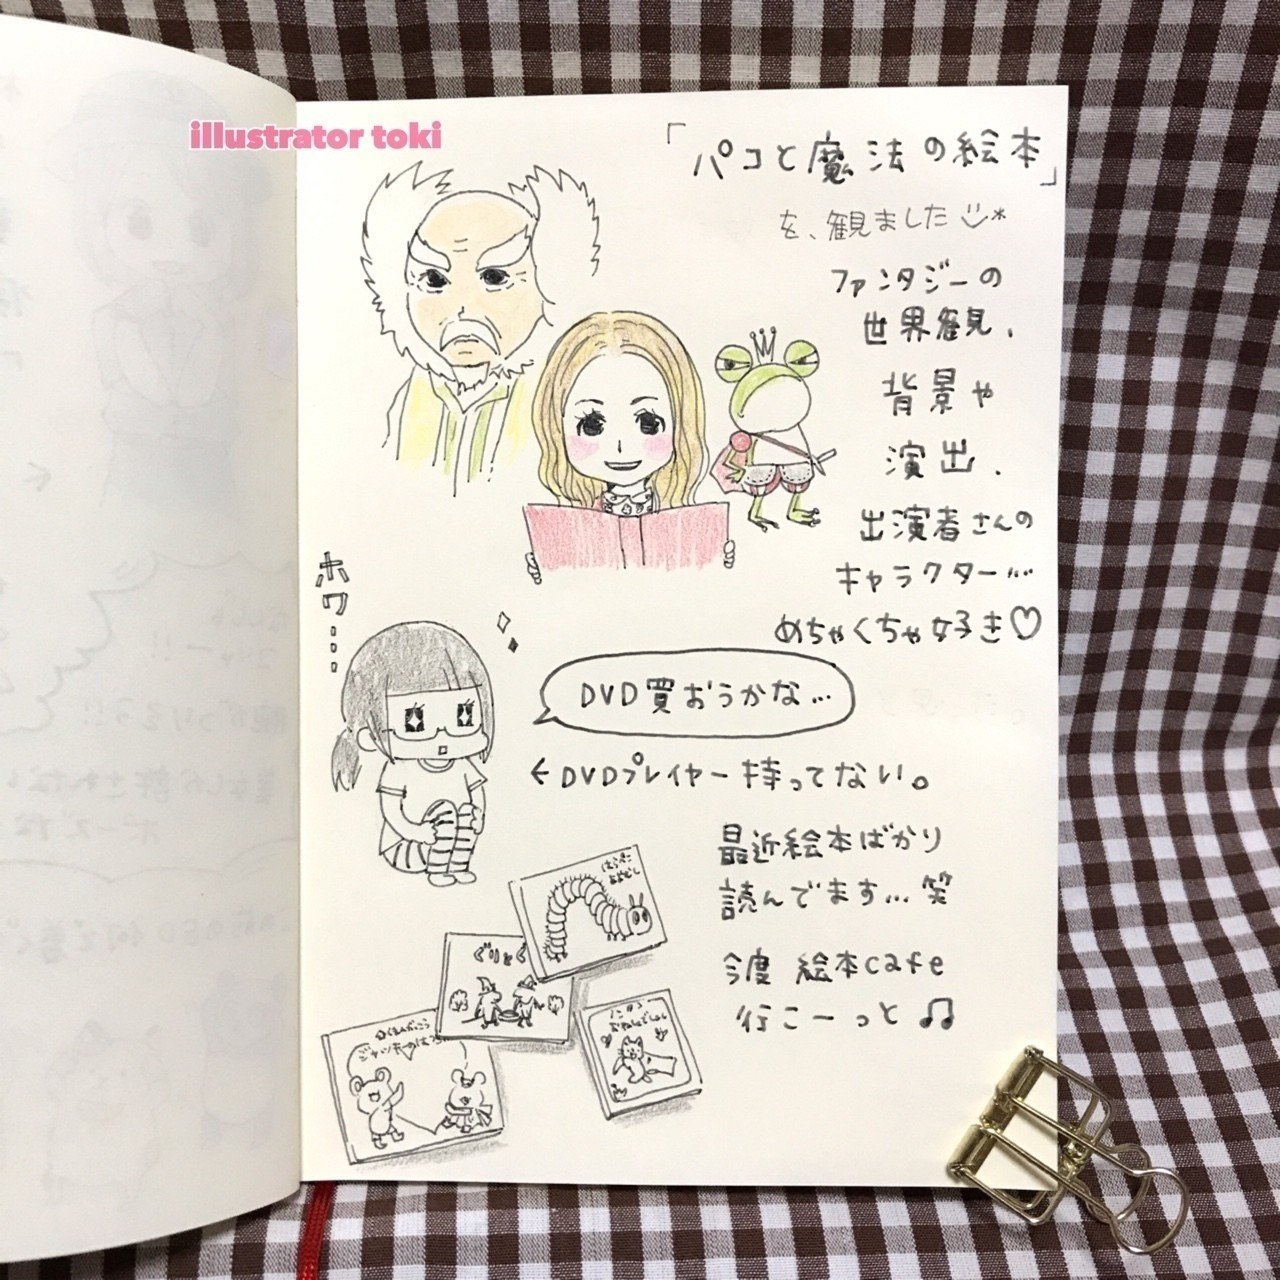 illustrator toki
「パコと魔法の絵本」
を、観ました
ファンタジーの
世界観、
背景や
演出、
出演者さんの
キャラクター…
めちゃくちゃ好き♡
ホワ……
DVD買おうかな…
←DVDプレイヤー持ってない。
最近絵本ばかり
読んでます…笑
今度 絵本cafe
行こーっと♫
はらぺこ
あおむし
ぐりとぐ